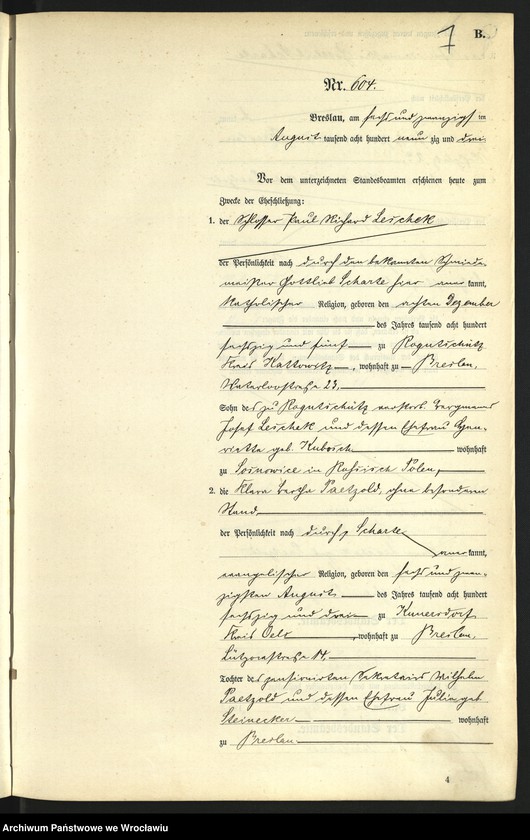 7 B.
Nr. 604.
Breslau, am sechs und zwanzigsten
August tausend acht hundert neunzig und drei
Vor dem unterzeichneten Standesbeamten erschienen heute zum
Zwecke der Eheschließung:
1. der Schlosser Paul Richard Leschek
der Persönlichkeit nach durch den bekannten Schmiede-
meister Gottlieb Scharte hier anerkannt,
katholischer Religion, geboren den achten Dezember
des Jahres tausend acht hundert
sechszig und fünf zu Rogutschütz
Kreis Kattowitz, wohnhaft zu Breslau,
Waterloostraße 23,
Sohn des zu Rogutschütz verstorb. Bergmanns
Josef Leschek und dessen Ehefrau Hen-
riette geb. Kubosch wohnhaft
zu Sosnowice in Russisch Polen,
2. die Klara Bertha Paetzold, ohne besonderen
Stand,
der Persönlichkeit nach durch p. Scharte
anerkannt,
evangelischer Religion, geboren den sechs und zwan-
zigsten August des Jahres tausend acht hundert
sechszig und drei zu Kunersdorf
Kreis Oels, wohnhaft zu Breslau,
Lützowstraße 14.
Tochter des pensionirten Sekretairs Wilhelm
Paetzold und dessen Ehefrau Julie geb.
Steinecker wohnhaft
zu Breslau
4
Archiwum Państwowe we Wrocławiu